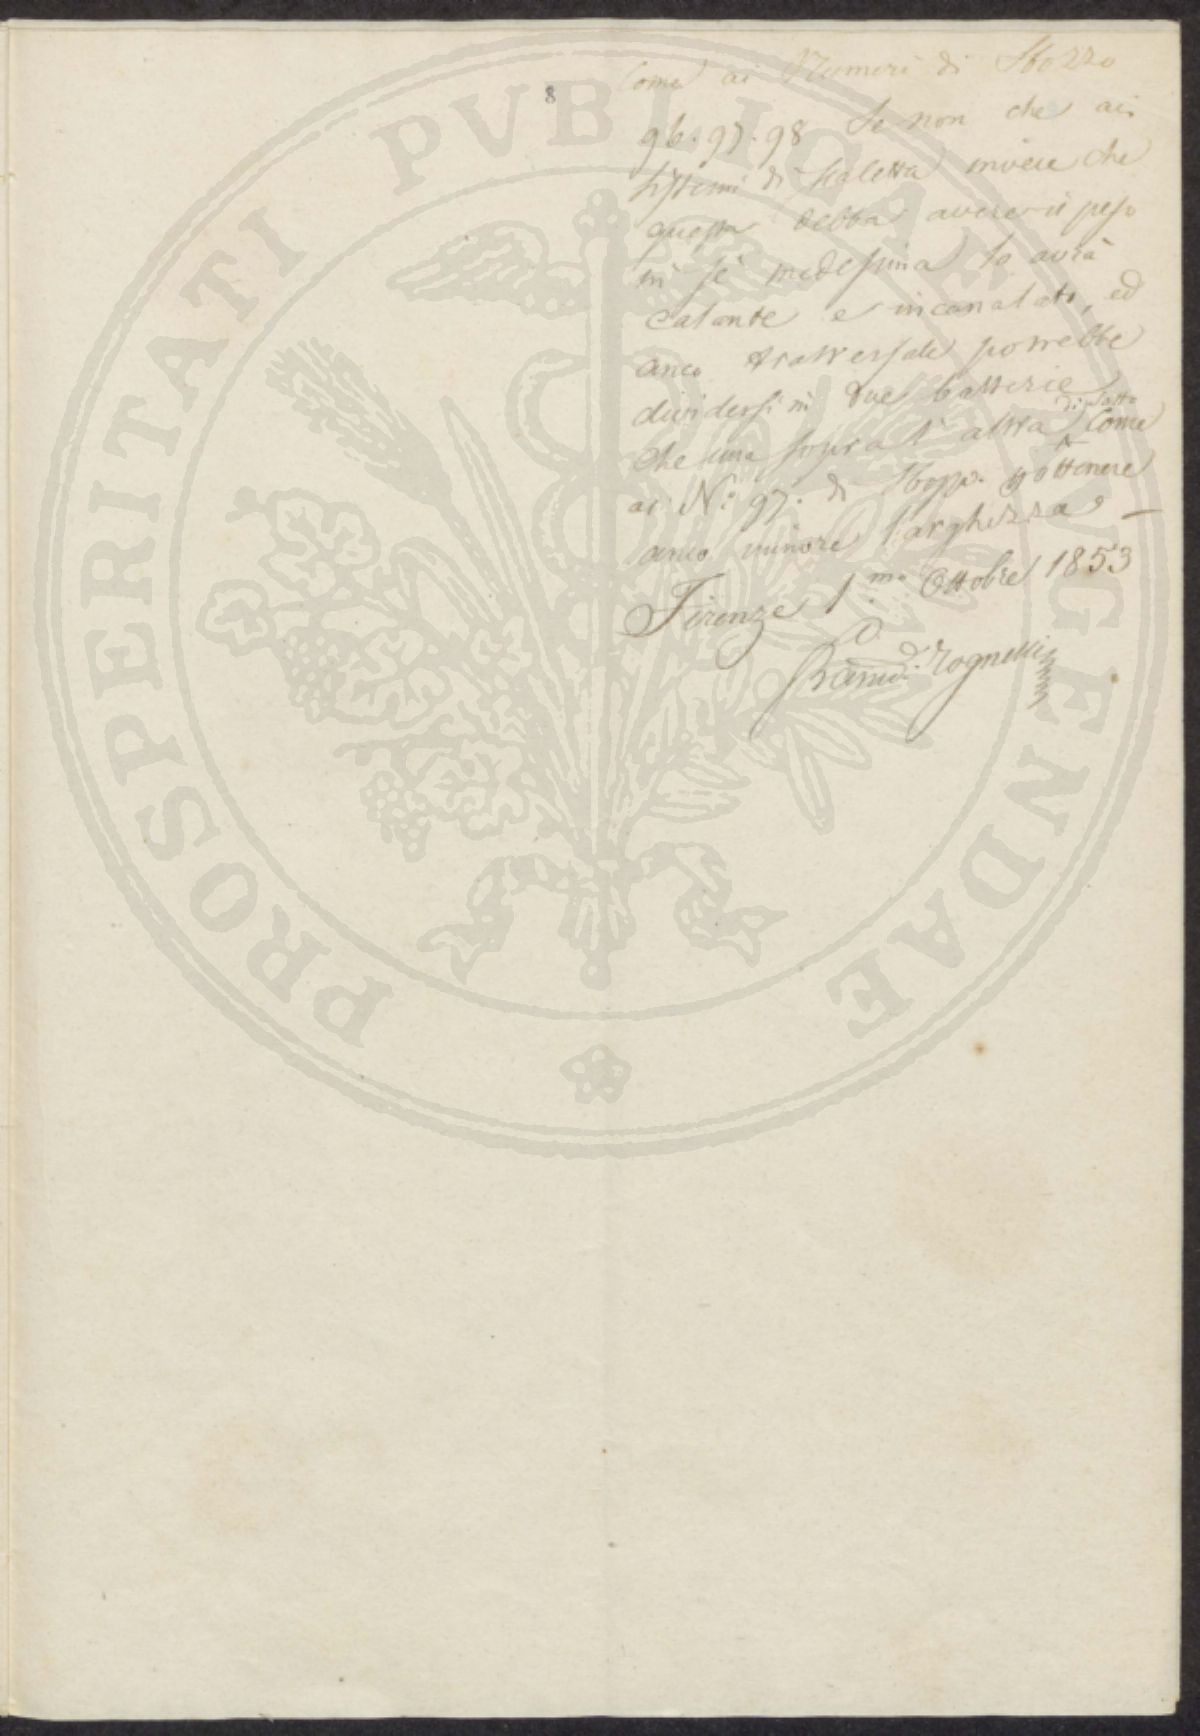 8
Come ai Numeri di Sbozzo
96. 97. 98 Se non che ai
sistemi di scaletta invece che
questa debba avere il peso
in se medesima lo avrà
calante e incanalato, ed
anco trasversale potrebbe
dividersi in due batterie
che una sopra l'altra
di sotto
Come
ai N.° 97. di Sbozzo ottenere
anco minore larghezza —
Firenze 1.mo Ottobre 1853
Tognelli
PROSPERITATI PVBLICAE AVGENDAE